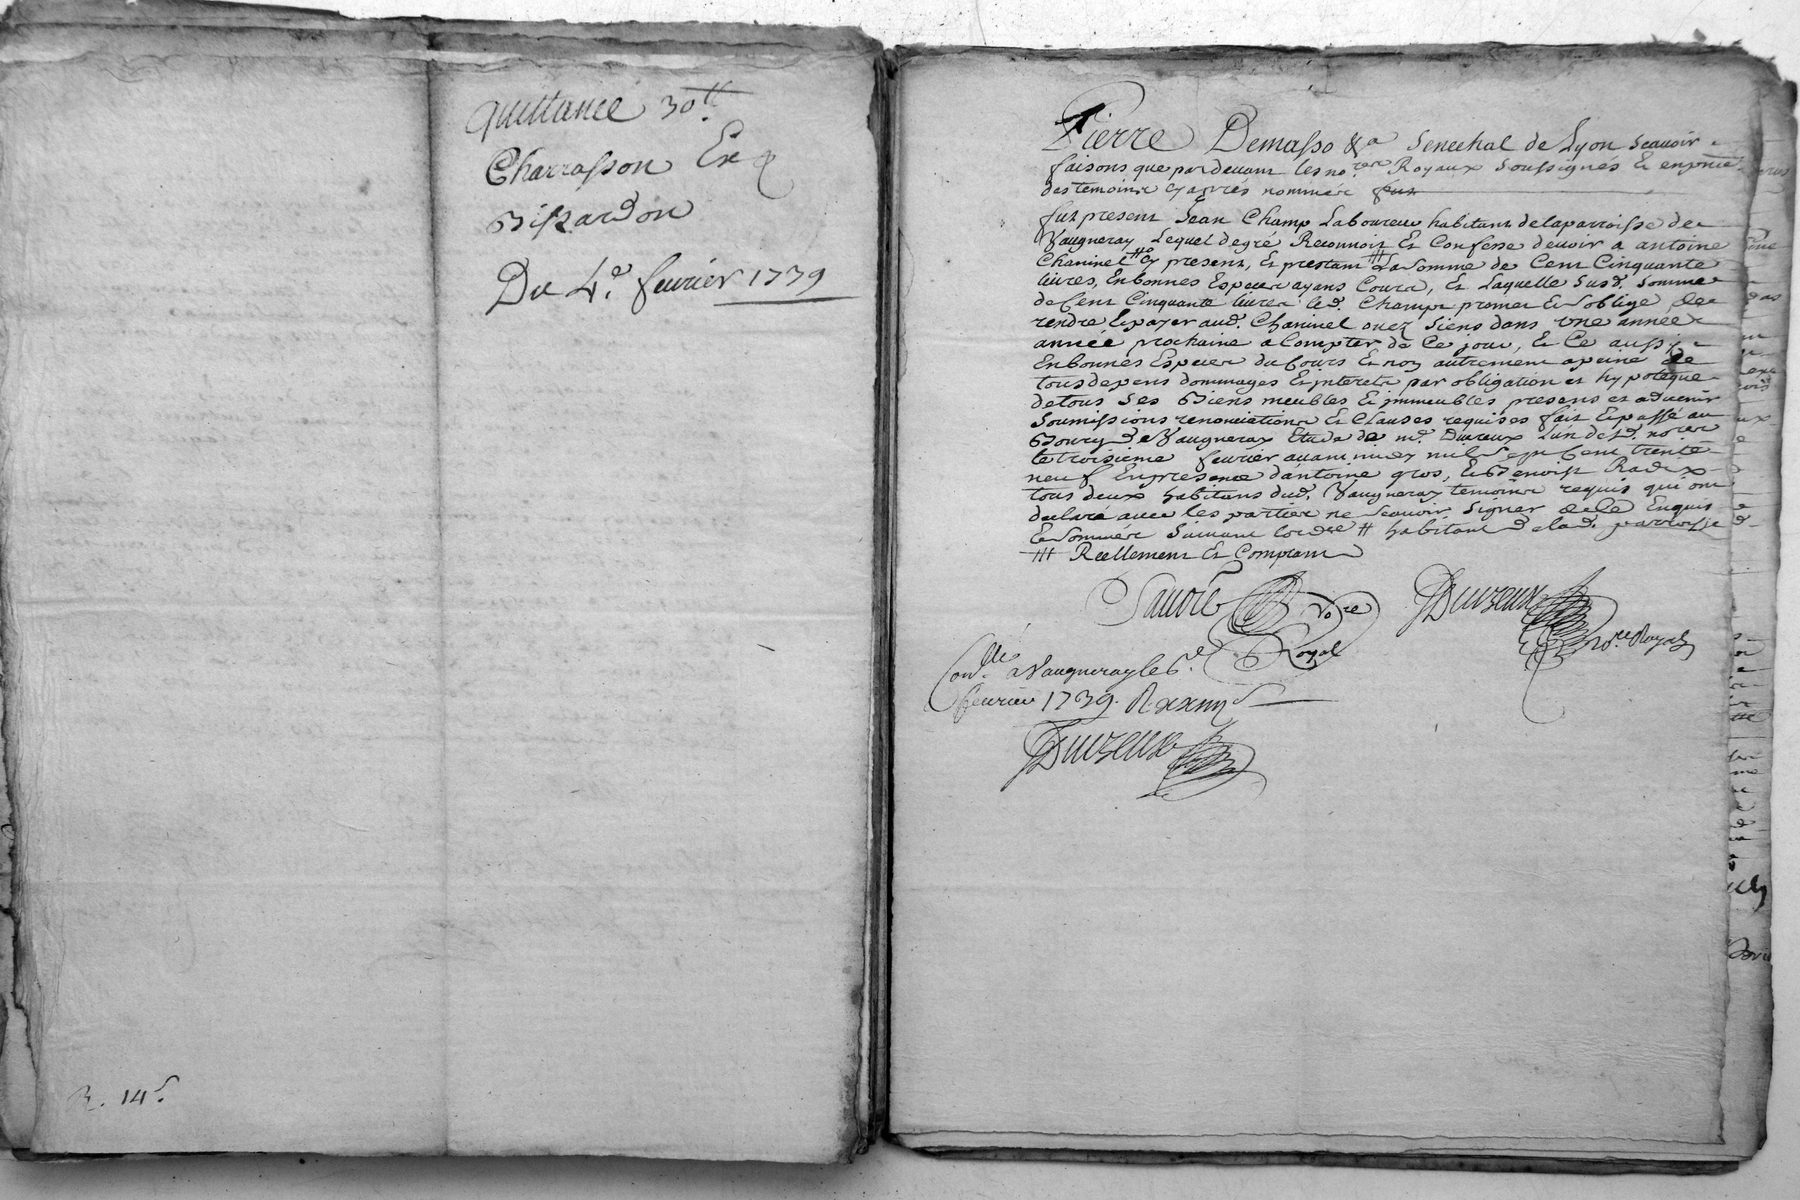 quittance 30ᵗᵗ
Charrasson Et
Bissardon
Du 4.ᵉ fevrier 1739
R. 14ˢ
Pierre Demasso &ᵃ Senechal de Lyon scavoir
faisons que pardevant les no.ʳᵉˢ Royaux soussignés Et en pnce
des temoins cy aprés nommés fut
fut present Jean Champ Laboureur habitant de la parroisse de
Vaugneray Lequel de gré Reconnoit Et Confesse devoir a antoine
Chaninel # cy present, Et prestant ### La somme de Cent Cinquante
livres, En bonnes Especes ayans Cours, Et Laquelle susd. somme
de Cent Cinquante livres led. Champ promet Et soblige de
rendre Et payer aud. Chaninel ou ez siens dans une année
année prochaine a Compter de Ce jour, Et Ce aussy
En bonnes Especes du Cours Et non autrement a peine de
tous depens dommages Et interets par obligation et hypoteque
de tous ses Biens meubles Et immeubles presens et advenir
soumissions renonciations Et Clauses requises fait Et passé au
Bourg de Vaugneray Etude de mᵉ. Duvzeux Lun desd. no.ʳᵉˢ
le troisieme fevrier avant midy mil sept Cent trente
neuf En presence d'antoine gros, Et Benoist Radix
tous deux habitans dud. Vaugneray temoins requis qui ont
declaré avec les parties ne scavoir signer de ce Enquis
Et sommés suivant lordᶜᵉ # habitant de lad. parroisse
### Reellement Et Comptant
Sauvré Noʳᵉ Royal
Duvzeux No.ʳᵉ Royal
Con.ˡˡᵉ a Vaugneray le 6.ᵉ
fevrier 1739. R. xxiiij ˢ
Duvzeux